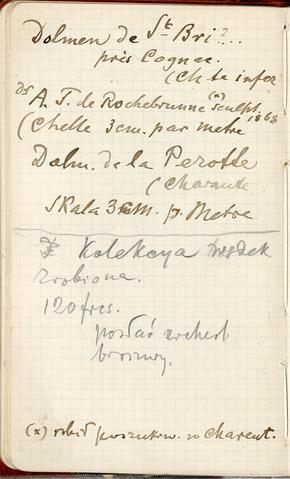 Dolmen de St Bri?...
près Cognac.
(Chte infer
A. T. de Rochebrunne (x) sculpt. 1868
(Chelle 3 cm. par metre
Dolm. de la Perotte
(Charente
Skala 3 cm. p. Metre
Kolekcya
zrobiona.
120 frcs.
posłać
broszury.
(x) robił poszukiw. w Charent.